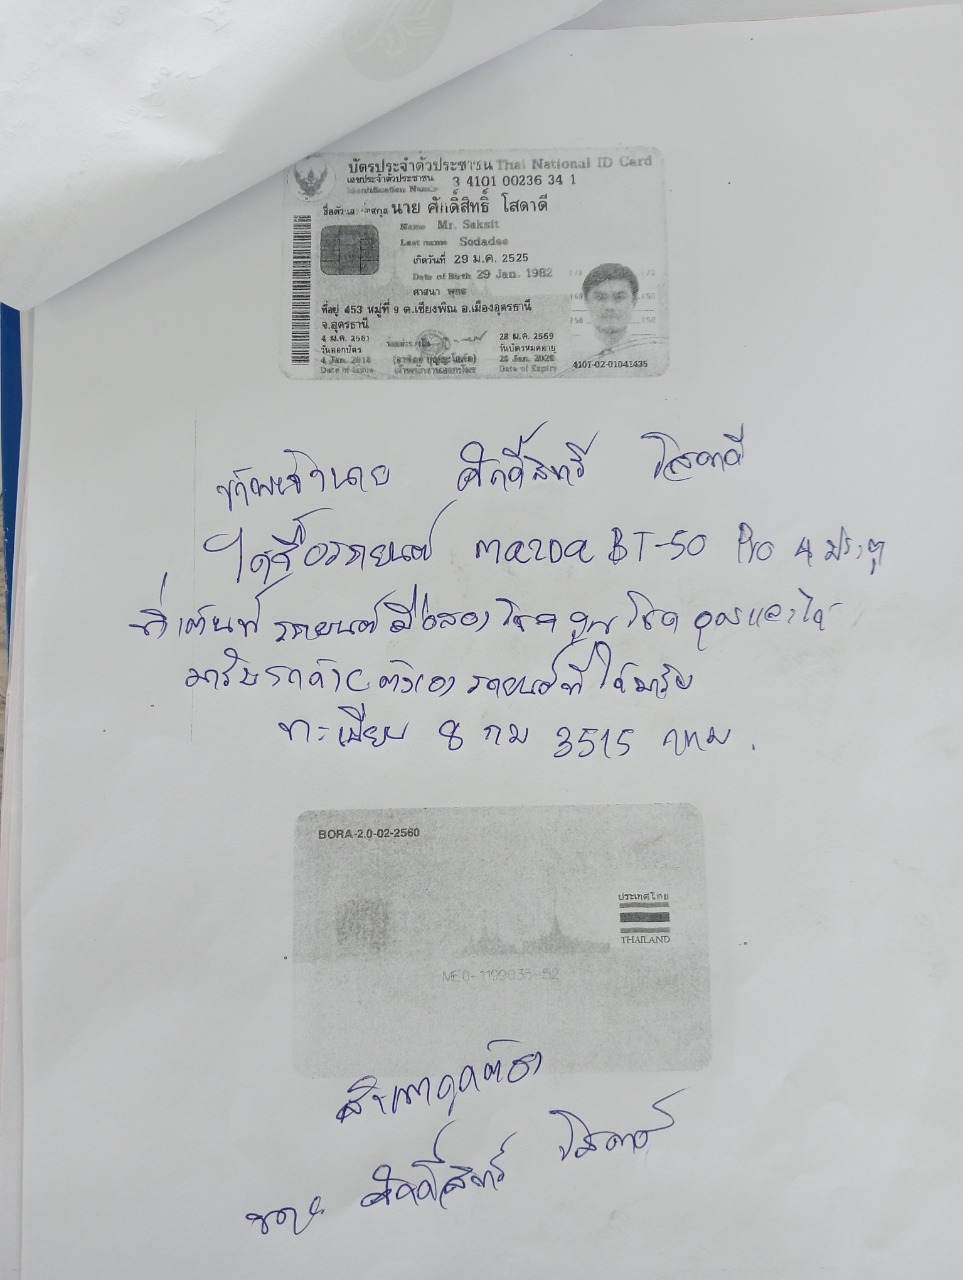 บัตรประจำตัวประชาชน Thai National ID Card
เลขประจำตัวประชาชน 3 4101 00236 34 1
Identification Number
ชื่อตัวและชื่อสกุล นาย ศักดิ์สิทธิ์ โสดาดี
Name Mr. Saksit
Last name Sodadee
เกิดวันที่ 29 ม.ค. 2525
Date of Birth 29 Jan. 1982
ศาสนา พุทธ
ที่อยู่ 453 หมู่ที่ 9 ต.เชียงพิณ อ.เมืองอุดรธานี
จ.อุดรธานี
4 ม.ค. 2561
วันออกบัตร
4 Jan. 2018
Date of Issue
28 ม.ค. 2569
วันบัตรหมดอายุ
28 Jan. 2026
Date of Expiry
4101-02-01041435
ข้าพเจ้านาย ศักดิ์สิทธิ์ โสดาดี
ได้ซื้อรถยนต์ mazda BT-50 Pro 4 ประตู
ที่เต้นท์รถยนต์มือสอง โชคคูณโชค อุดรและได้
มารับรถด้วยตัวเอง รถยนต์ที่ได้มารับ
ทะเบียน 8 กม 3515 กทม.
BORA-2.0-02-2560
ประเทศไทย
THAILAND
สำเนาถูกต้อง
นาย ศักดิ์สิทธิ์ โสดาดี